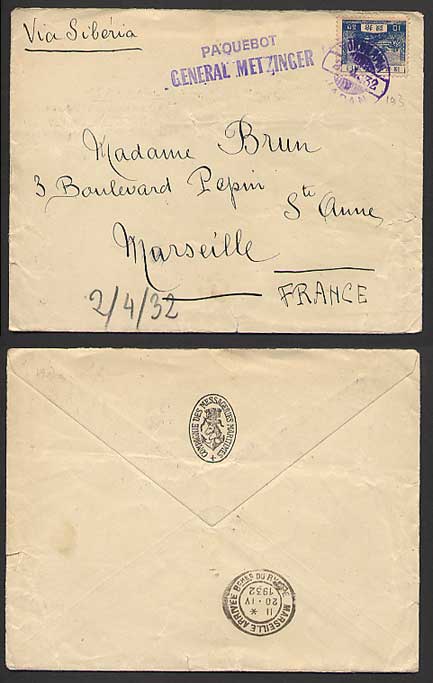 Via Sibéria
PAQUEBOT
GENERAL METZINGER
JAPAN
193
Madame Brun
3 Boulevard Pepin
Ste Anne
Marseille
FRANCE
2/4/32
COMPAGNIE DES MESSAGERIES MARITIMES
MARSEILLE ARRIVÉE BCHES DU RHONE
11 *
20 - IV
1932